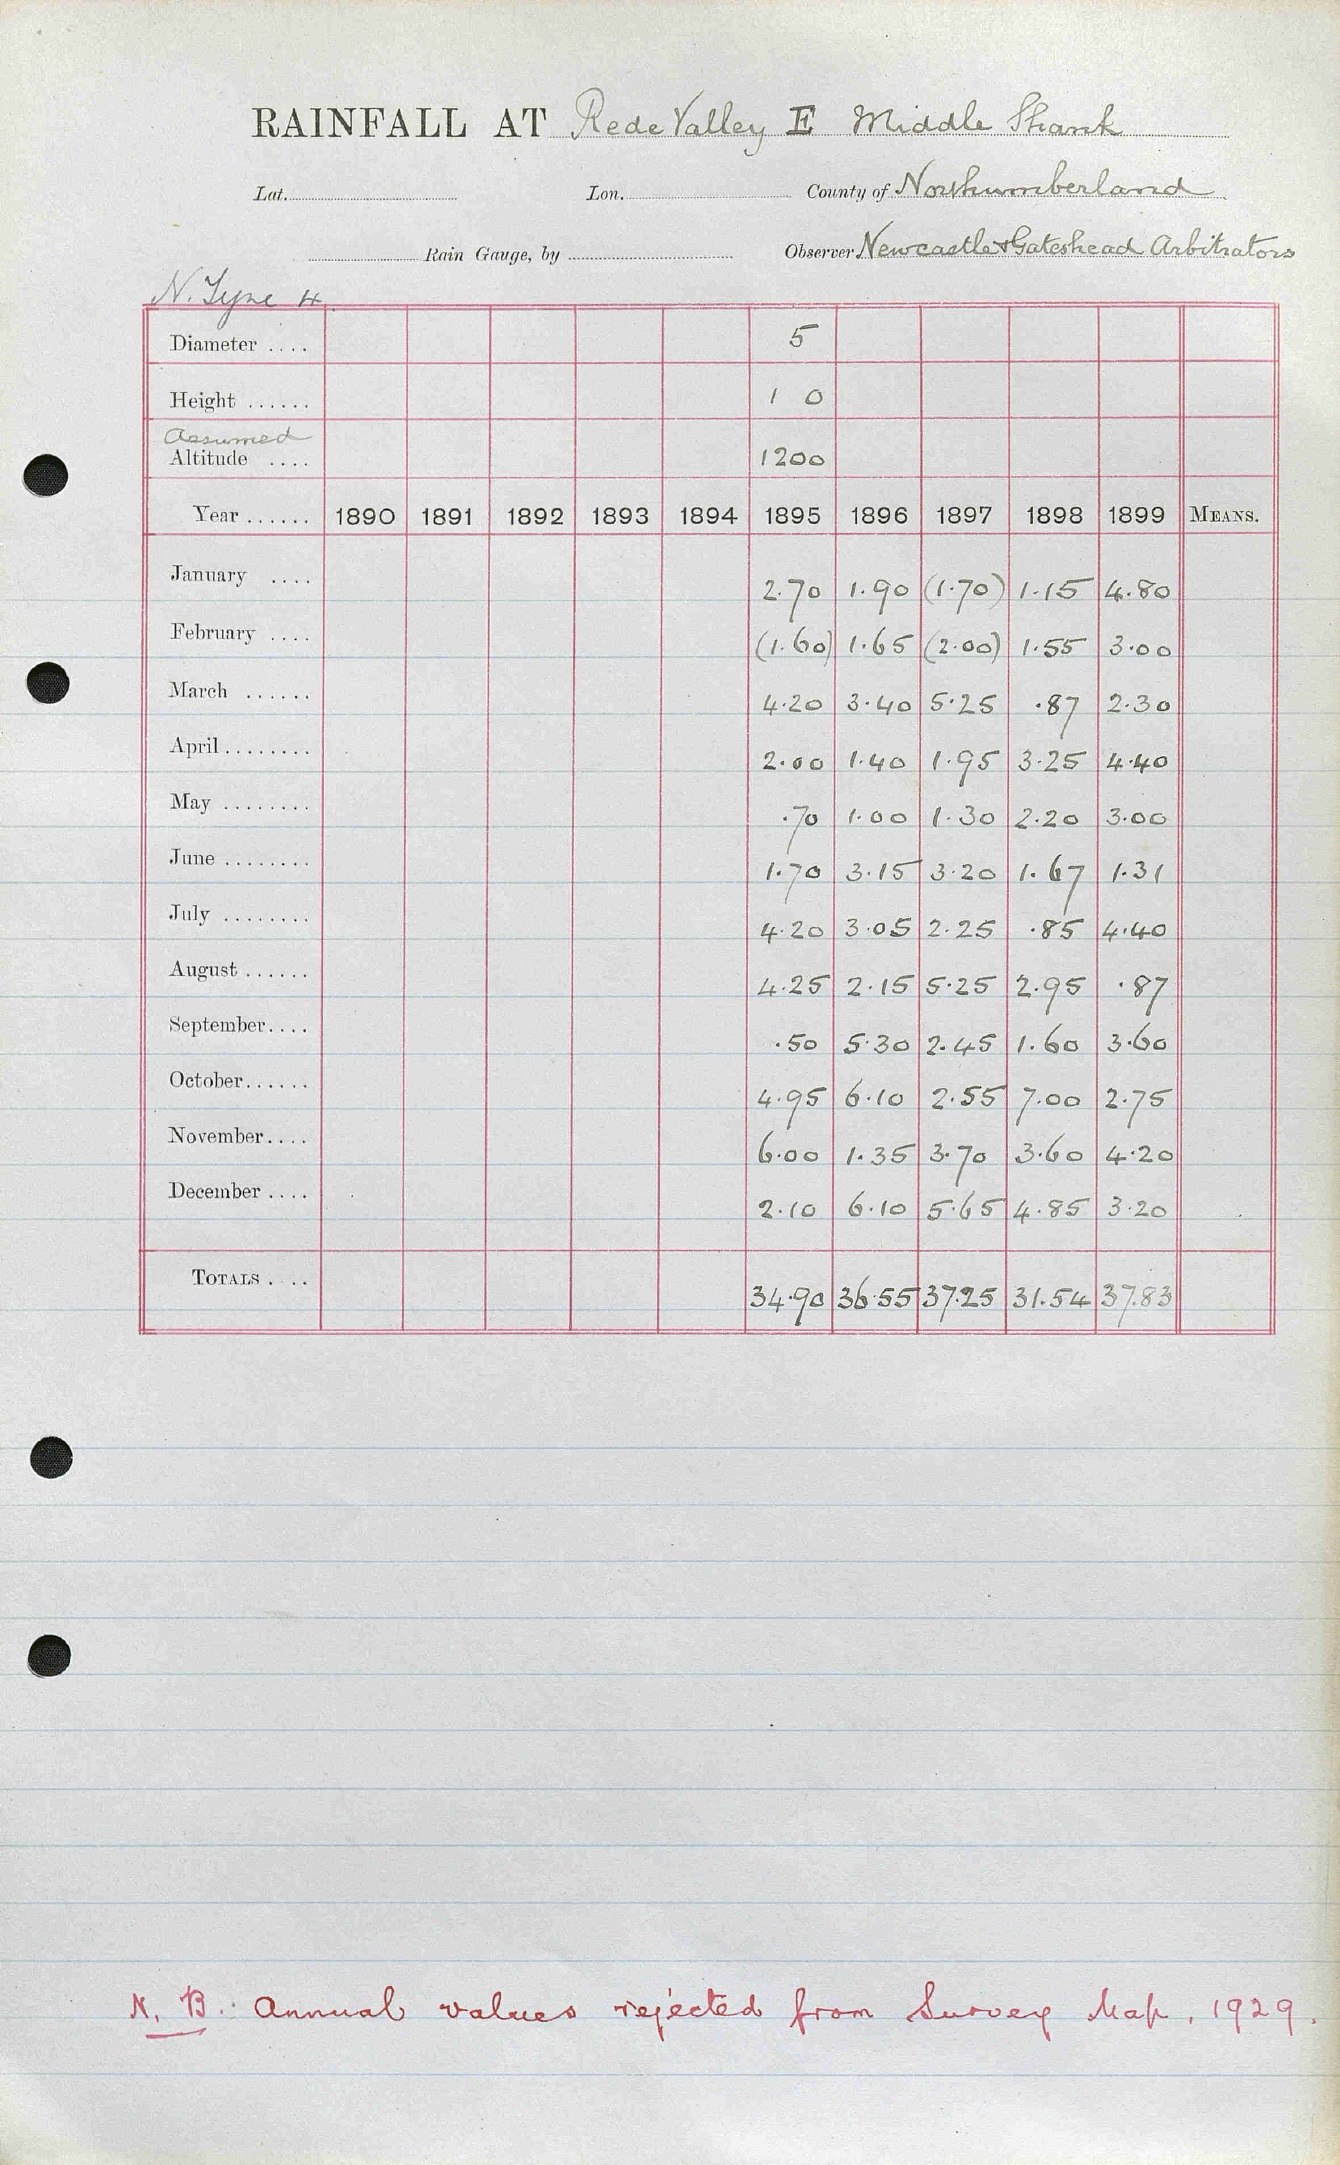 RAINFALL AT Rede Valley E Middle Shank
Lat. Lon. County of Northumberland
Rain Gauge, by Observer Newcastle & Gateshead Arbitrators
N. Tyne 4
Diameter .... 5
Height ...... 1 0
Assumed
Altitude .... 1200
Year ...... 1890 1891 1892 1893 1894 1895 1896 1897 1898 1899 MEANS.
January .... 2.70 1.90 (1.70) 1.15 4.80
February .... (1.60) 1.65 (2.00) 1.55 3.00
March ...... 4.20 3.40 5.25 .87 2.30
April ........ 2.00 1.40 1.95 3.25 4.40
May ........ .70 1.00 1.30 2.20 3.00
June ........ 1.70 3.15 3.20 1.67 1.31
July ........ 4.20 3.05 2.25 .85 4.40
August ...... 4.25 2.15 5.25 2.95 .87
September .... .50 5.30 2.45 1.60 3.60
October ...... 4.95 6.10 2.55 7.00 2.75
November .... 6.00 1.35 3.70 3.60 4.20
December .... 2.10 6.10 5.65 4.85 3.20
TOTALS .... 34.90 36.55 37.25 31.54 37.83
N. B. : Annual values rejected from Survey Map, 1929.